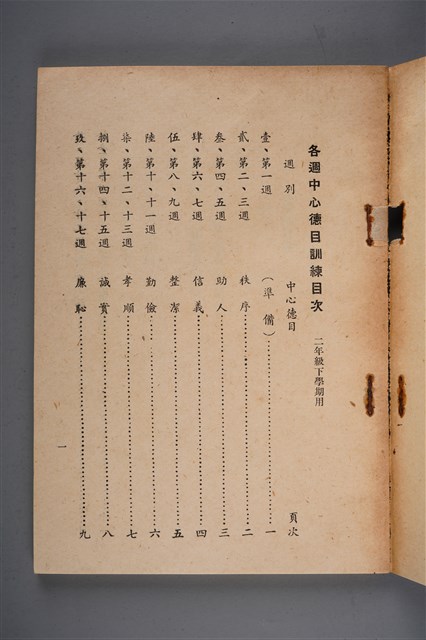 各週中心德目訓練目次 二年級下學期用
週別 中心德目 頁次
壹、第一週 （準備）………………一
貳、第二、三週 秩序………………二
叁、第四、五週 助人………………三
肆、第六、七週 信義………………四
伍、第八、九週 整潔………………五
陸、第十、十一週 勤儉………………六
柒、第十二、十三週 孝順………………七
捌、第十四、十五週 誠實………………八
玖、第十六、十七週 廉恥………………九
一